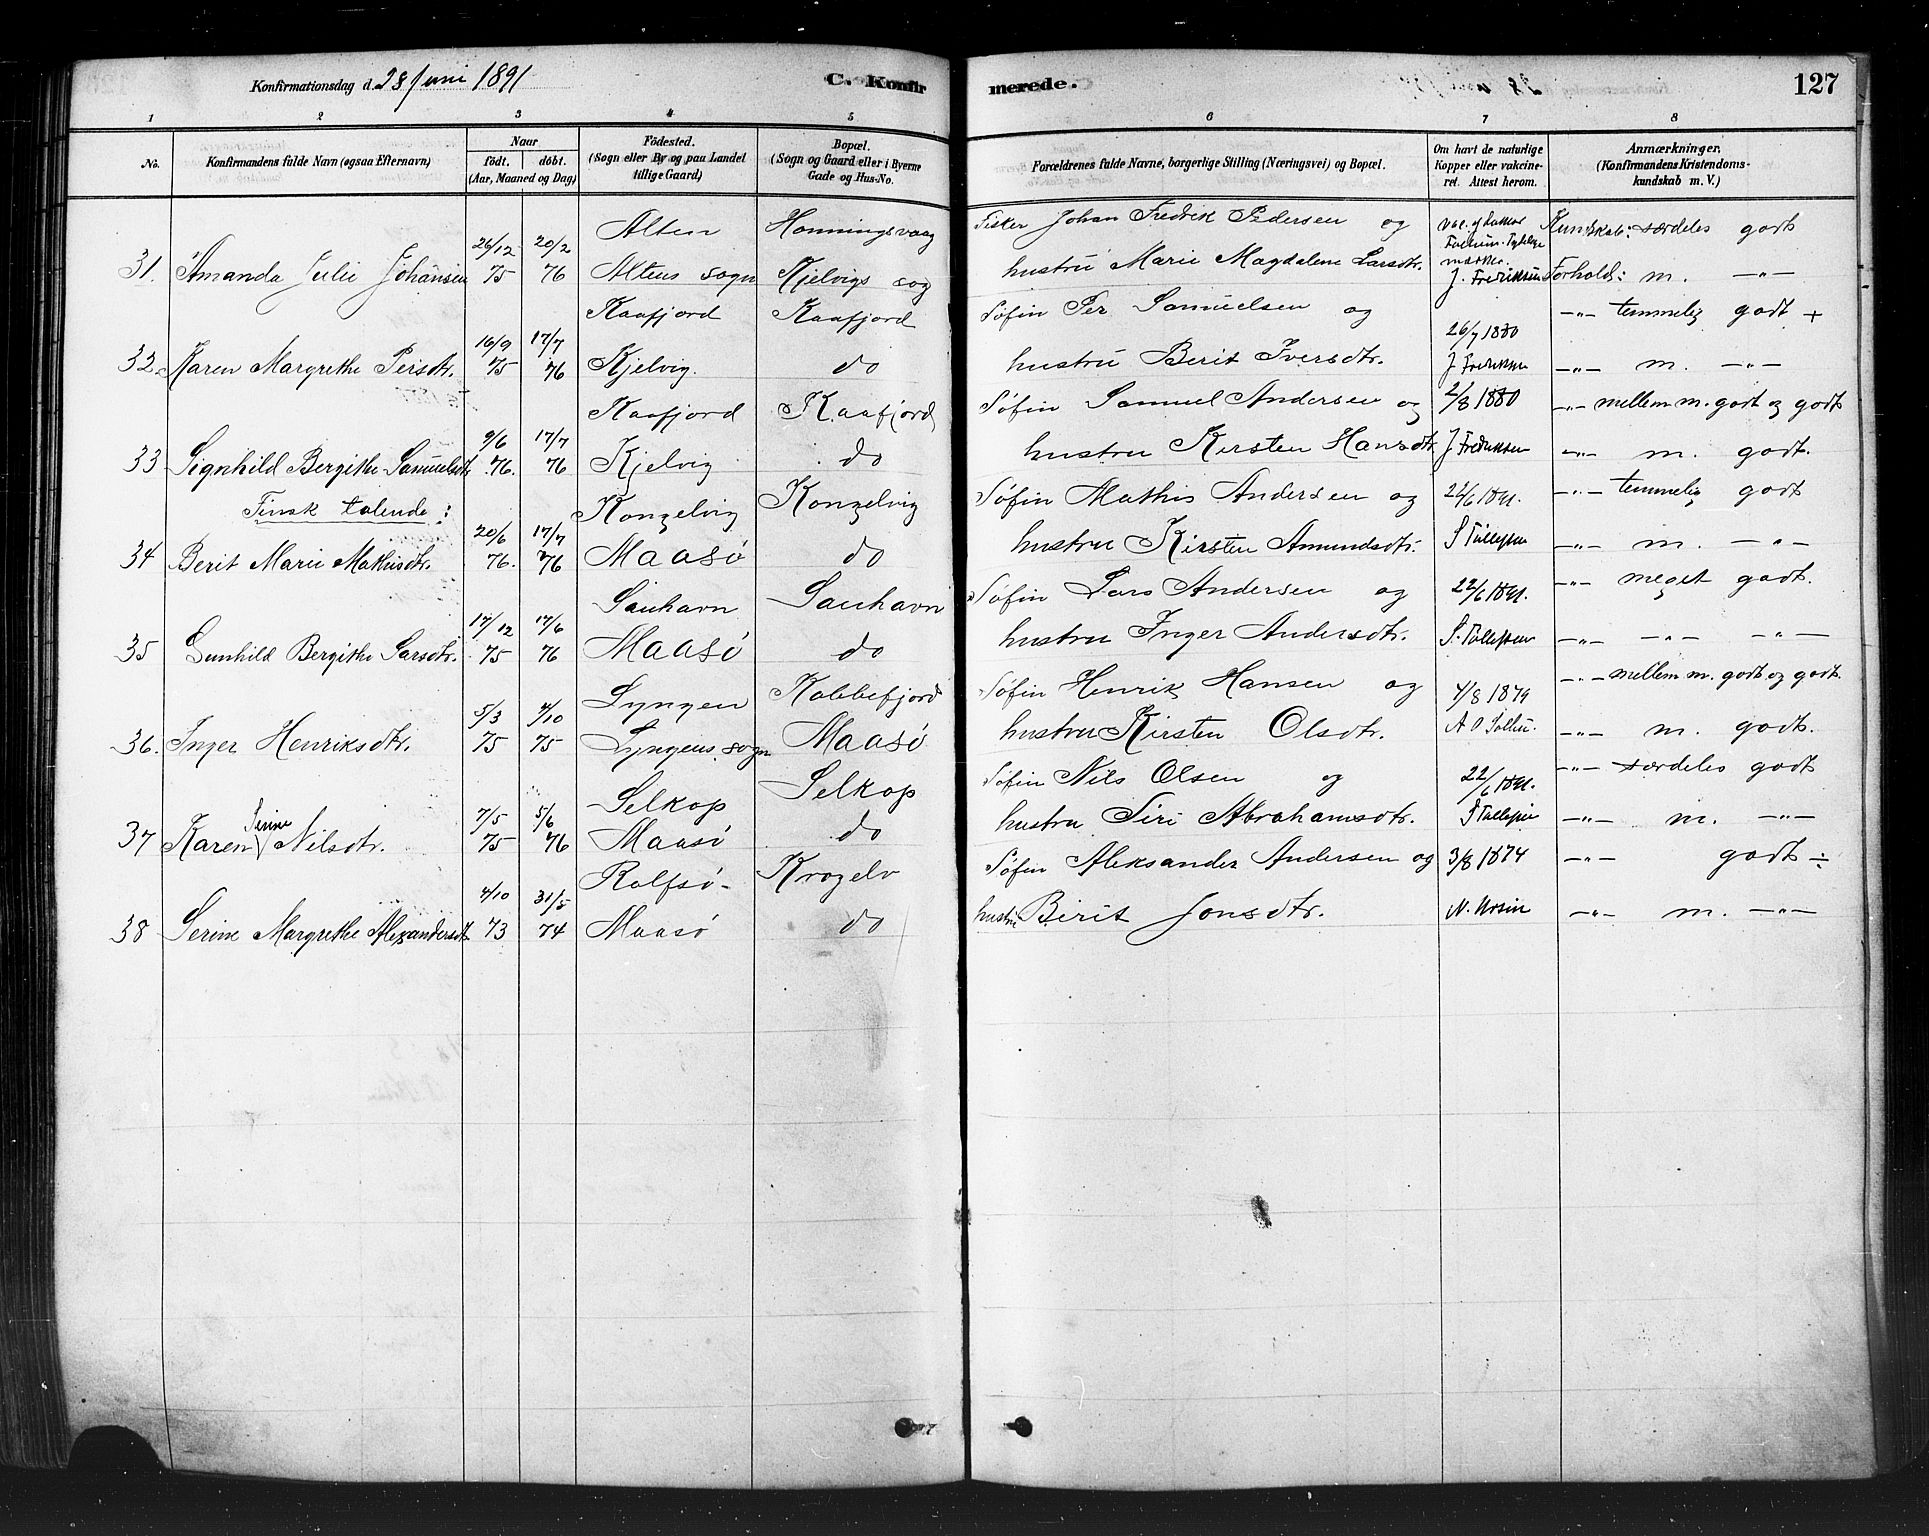 Konfirmationsdag d. 28 Juni 1891
C. Konfirmerede.
127
1 2 3 4 5 6 7 8
No.
Konfirmandens fulde Navn (ogsaa Efternavn)
Naar
födt. döbt.
(Aar, Maaned og Dag)
Födested.
(Sogn eller By og paa Landet
tillige Gaard)
Bopæl.
(Sogn og Gaard eller i Byerne
Gade og Hus-No.
Forældrenes fulde Navne, borgerlige Stilling (Næringsvei) og Bopæl.
Om havt de naturlige
Kopper eller vakcine-
ret. Attest herom.
Anmærkninger.
(Konfirmandens Kristendoms-
kundskab m. V.)
26/12 20/2 Alten Honningsvaag Fisker Johan Fredrik Pedersen og Kundskab: særdeles godt
31. Amanda Julie Johansen 75 76 Altens sogn Kjelvigs sog hustru Marie Magdalene Larsdtr. J. Fredriksen Forhold: m. —"—
16/9 17/7 Kaafjord Kaafjord Søfin Per Samuelsen og 26/7 1880 —"— temmelig godt +
32. Karen Margrethe Persdtr. 75 76 Kjelvig. do hustru Berit Iversdtr. J Fredriksen —"— m. —"—
9/6 17/7 Kaafjord Kaafjord Søfin Samuel Andersen og 2/8 1880 —"— mellem m. godt og godt
33 Signhild Bergithe Samuelsdtr. 76. 76 Kjelvig do hustru Kirsten Hansdtr. J Fredriksen —"— m. godt.
Finsk talende:
20/6 17/7 Kongelvig Kongelvig Søfin Mathis Andersen og 22/6 1891. —"— temmelig godt
34 Berit Marie Mathisdtr. 76. 76 Maasø do hustru Kirsten Amundsdtr. S Tollefsen —"— m. —"—
17/12 17/6 Sauhavn Sauhavn Søfin Lars Andersen og 22/6 1891. —"— meget godt.
35 Gunhild Bergithe Larsdtr. 75 76 Maasø do hustru Inger Andersdtr. S. Tollefsen —"— —"— —"—
5/3 4/10 Lyngen Kobbefjord Søfin Henrik Hansen og 4/8 1879 —"— mellem m. godt og godt.
36. Inger Henriksdtr. 75 75 Lyngens sogn Maasø hustru Kirsten Olsdtr. —"— m. godt.
7/5 5/6 Selkop Selkop Søfin Nils Olsen og 22/6 1891. —"— særdeles godt
37 Karen Serine Nilsdtr. 75 76 Maasø do hustru Siri Abrahamsdtr. S Tollefsen —"— m. —"—
4/10 31/5 Rolfsø- Krogelv Søfin Aleksander Andersen og 3/8 1874 —"— godt ÷
38 Serine Margrethe Alexandersdtr. 73 74 Maasø do hustru Birit Jonsdtr. N. Ursin —"— m. —"—